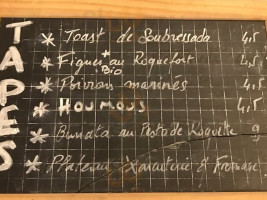 TAPES
* Toast de Soubressada 4,5
* Figues au Roquefort 4,5
* Bio
* Poivrons marinés 4,5
* HOUMOUS 4,5
* Burrata au Pesto de Roquette 9
* Plateau Xarcuterie & Fromage